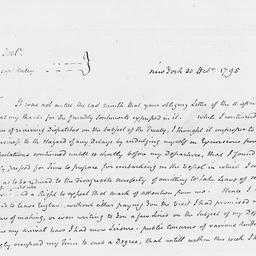 New York 20 Decr. 1795
It was not until the last month that your obliging Letter of the 11 april
my thanks for the friendly Sentiments expressed in it. While I continued
of receiving Dispatches on the Subject of the Treaty, I thought it improper to
to the Hazard of any Delays by indulging myself in Excursions from
continued until so shortly before my Departure, that I found
pressed for Time to prepare for embarking in the Vessel in which I
as to be reduced to the disagreable necessity of omitting to take Leave of
had a Right to expect that mark of attention from me. Hence I
to leave England, without either paying you the Visit I had promised
of making, or even writing to you a few Lines on the Subject of my
my arrival have I had more Leisure. public concerns of various kinds
occupied my Time to such a Degree, that until within this week I